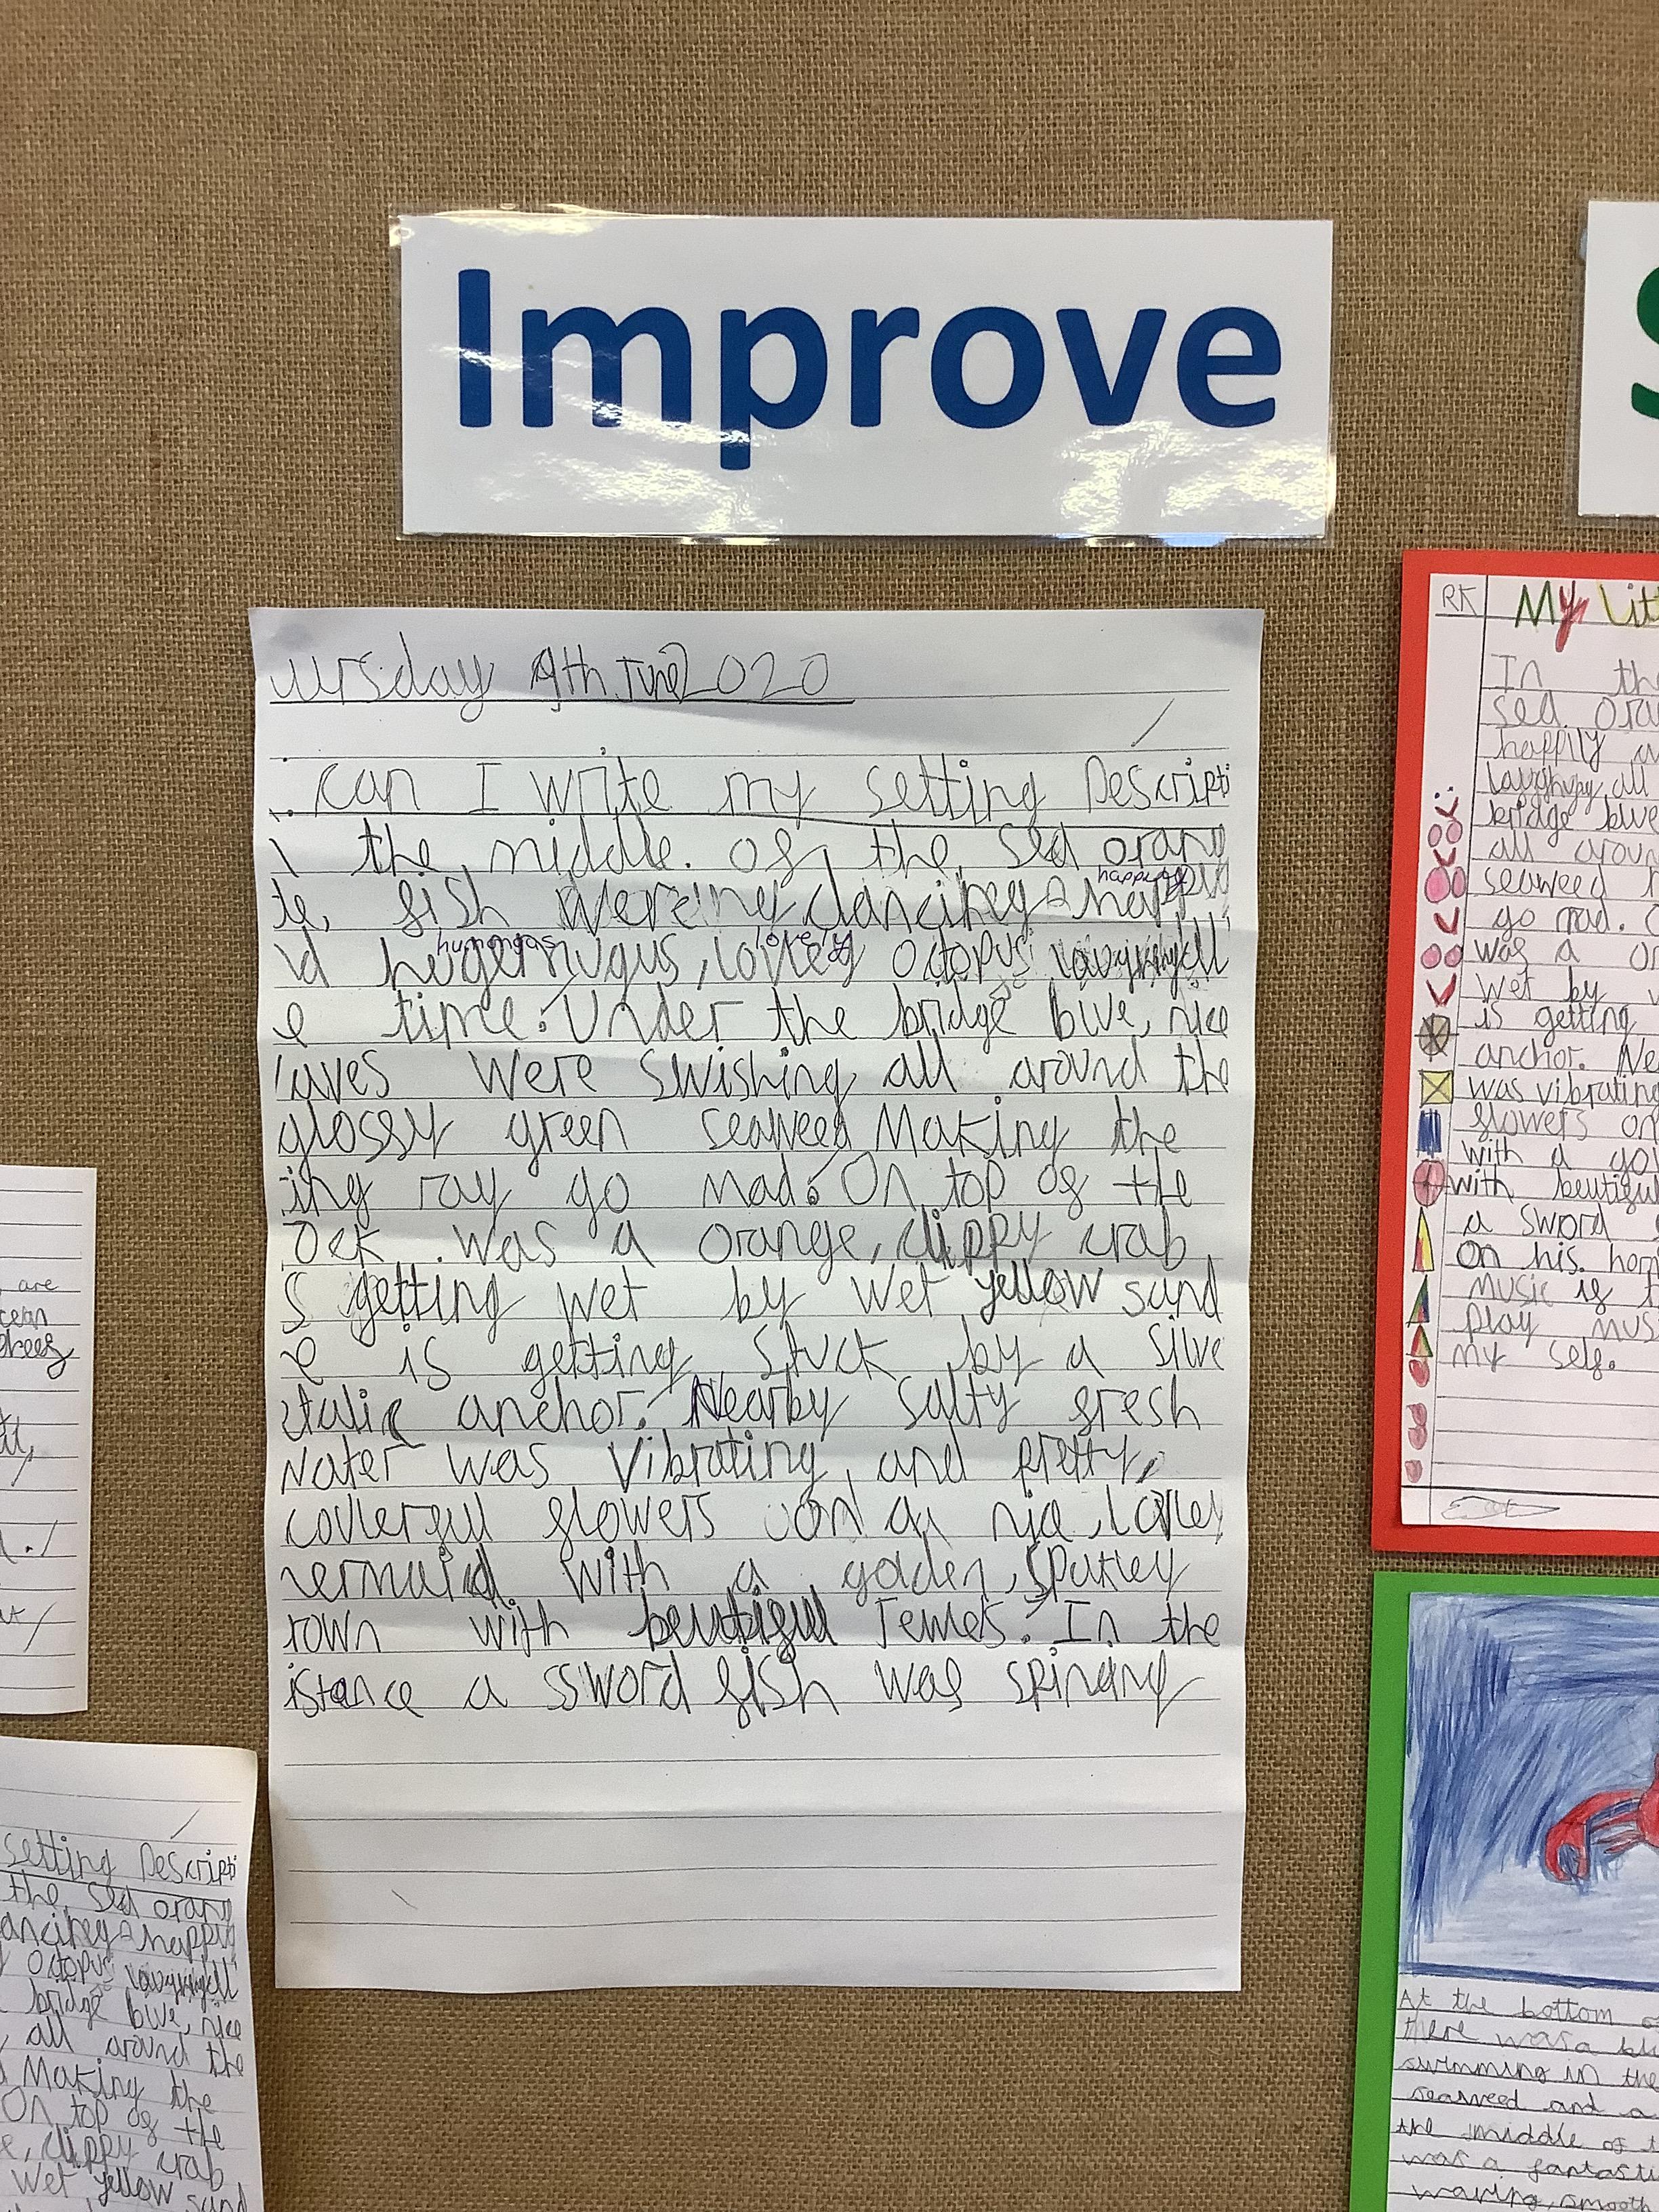 Improve
ursday 9th June 2020
can I write my setting Descripti
the middle. of the sea orang
te, fish were dancing happily
happily
humongas lovely
octopus
e time. Under the bridge blue, nice
aves were swishing all around the
glossy green seaweed Making the
ing ray go mad. On top of the
ock was a orange, clippy crab
s getting wet by wet yellow sand
e is getting stuck by a silve
talic anchor. Nearby salty fresh
water was vibrating, and pretty,
coulerful flowers on a nice, lovley
mermaid with a golden, sparkley
rown with beutiful Jemes. In the
istance a ssword fish was spining
RK My Lit
In the
sea. ora
happily a
laughing all
bridge blue
all aroun
seaweed
go mad. O
was a or
wet by
is getting
anchor. Ne
was vibrating
flowers on
with a gol
with beutiful
a sword
on his. horn
music is
play mus
my self.
At the bottom o
there was a blu
swimming in the
seaweed and a
the middle of t
was a fantasti
waving, smooth
are
cean
setting Descripti
the sea orang
ancing happily
octopus
bridge blue, nice
all around the
Making the
On top of the
e, clippy crab
wet yellow sand